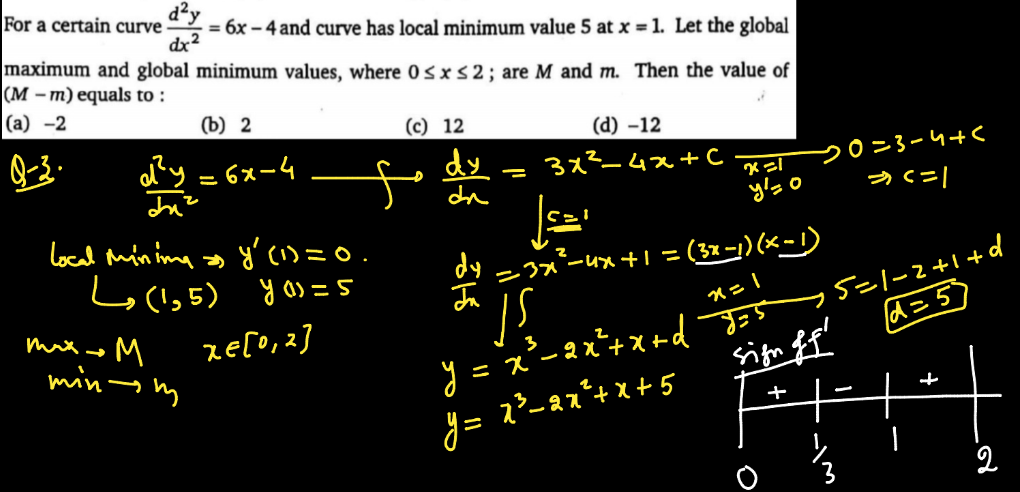 For a certain curve d²y/dx² = 6x – 4 and curve has local minimum value 5 at x = 1. Let the global
maximum and global minimum values, where 0 ≤ x ≤ 2 ; are M and m. Then the value of
(M – m) equals to :
(a) –2 (b) 2 (c) 12 (d) –12
Q-3. d²y/dx² = 6x-4 ∫→ dy/dx = 3x²-4x+c x=1 y'=0 → 0=3-4+c
⇒ c=1
c=1
Local minima → y'(1)=0.
↳ (1,5) y(1)=5
dy/dx = 3x²-4x+1 = (3x-1)(x-1)
∫
max → M x∈[0,2]
min → m
y = x³-2x²+x+d x=1 y=5 → 5=1-2+1+d
d=5
y = x³-2x²+x+5
sign of f'
+ - +
0 1/3 1 2